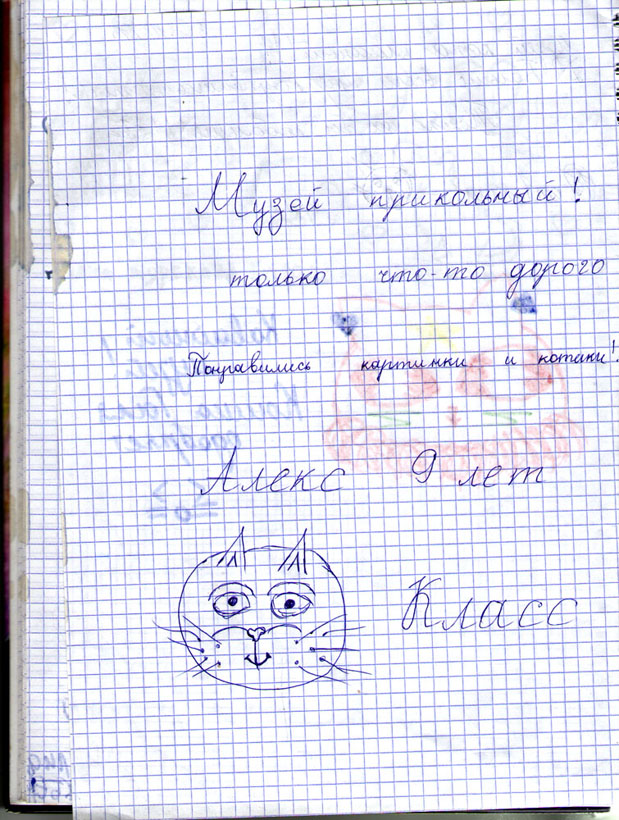 Музей прикольный!
только что-то дорого
Понравились картинки и котаки!
Алекс 9 лет
Класс